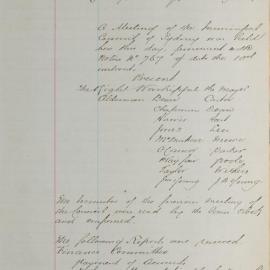 A Meeting of the Municipal
Council of Sydney was held
here this day, pursuant with
Notice No 767 of date the
instant.
Present
The Right Worshipful the Mayor
Alderman Dean Carter
Chapman Evan
Harris
Jones Lees
McMahon
O'Connor Parker
Playfair Poole
Taylor Withers
J D Young
The minutes of the previous meeting of
the Council were read by the Town Clerk
and confirmed.
The following Reports were received
Finance Committee
Payment of Accounts